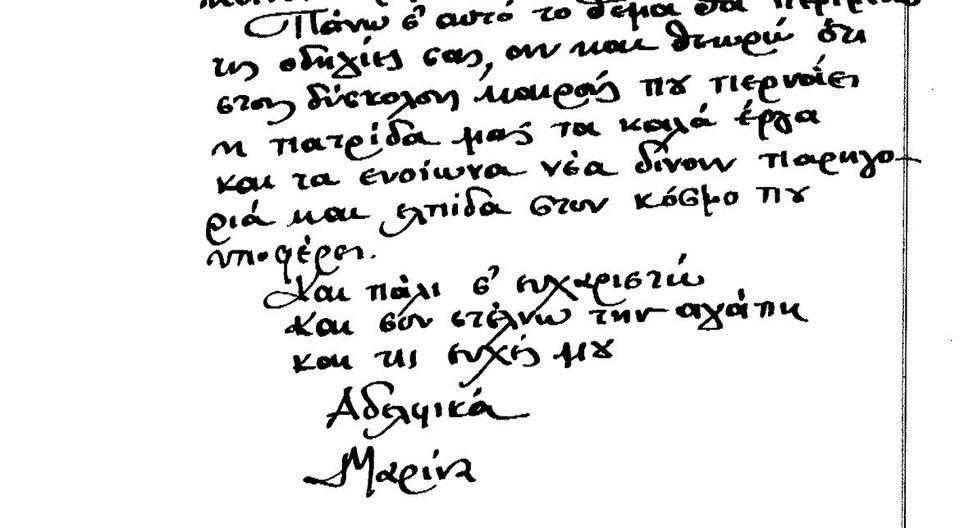 Πάνω σ' αυτό το θέμα θα
τις οδηγίες σας, αν και θεωρώ ότι
στους δύσκολους καιρούς που περνάει
η πατρίδα μας τα καλά έργα
και τα ενοίωνα νέα δίνουν παρηγο-
ριά και ελπίδα στον κόσμο που
υποφέρει.
Και πάλι σ' ευχαριστώ
και σου στέλνω την αγάπη
και τις ευχές μου
Αδελφικά
Μαρίνα